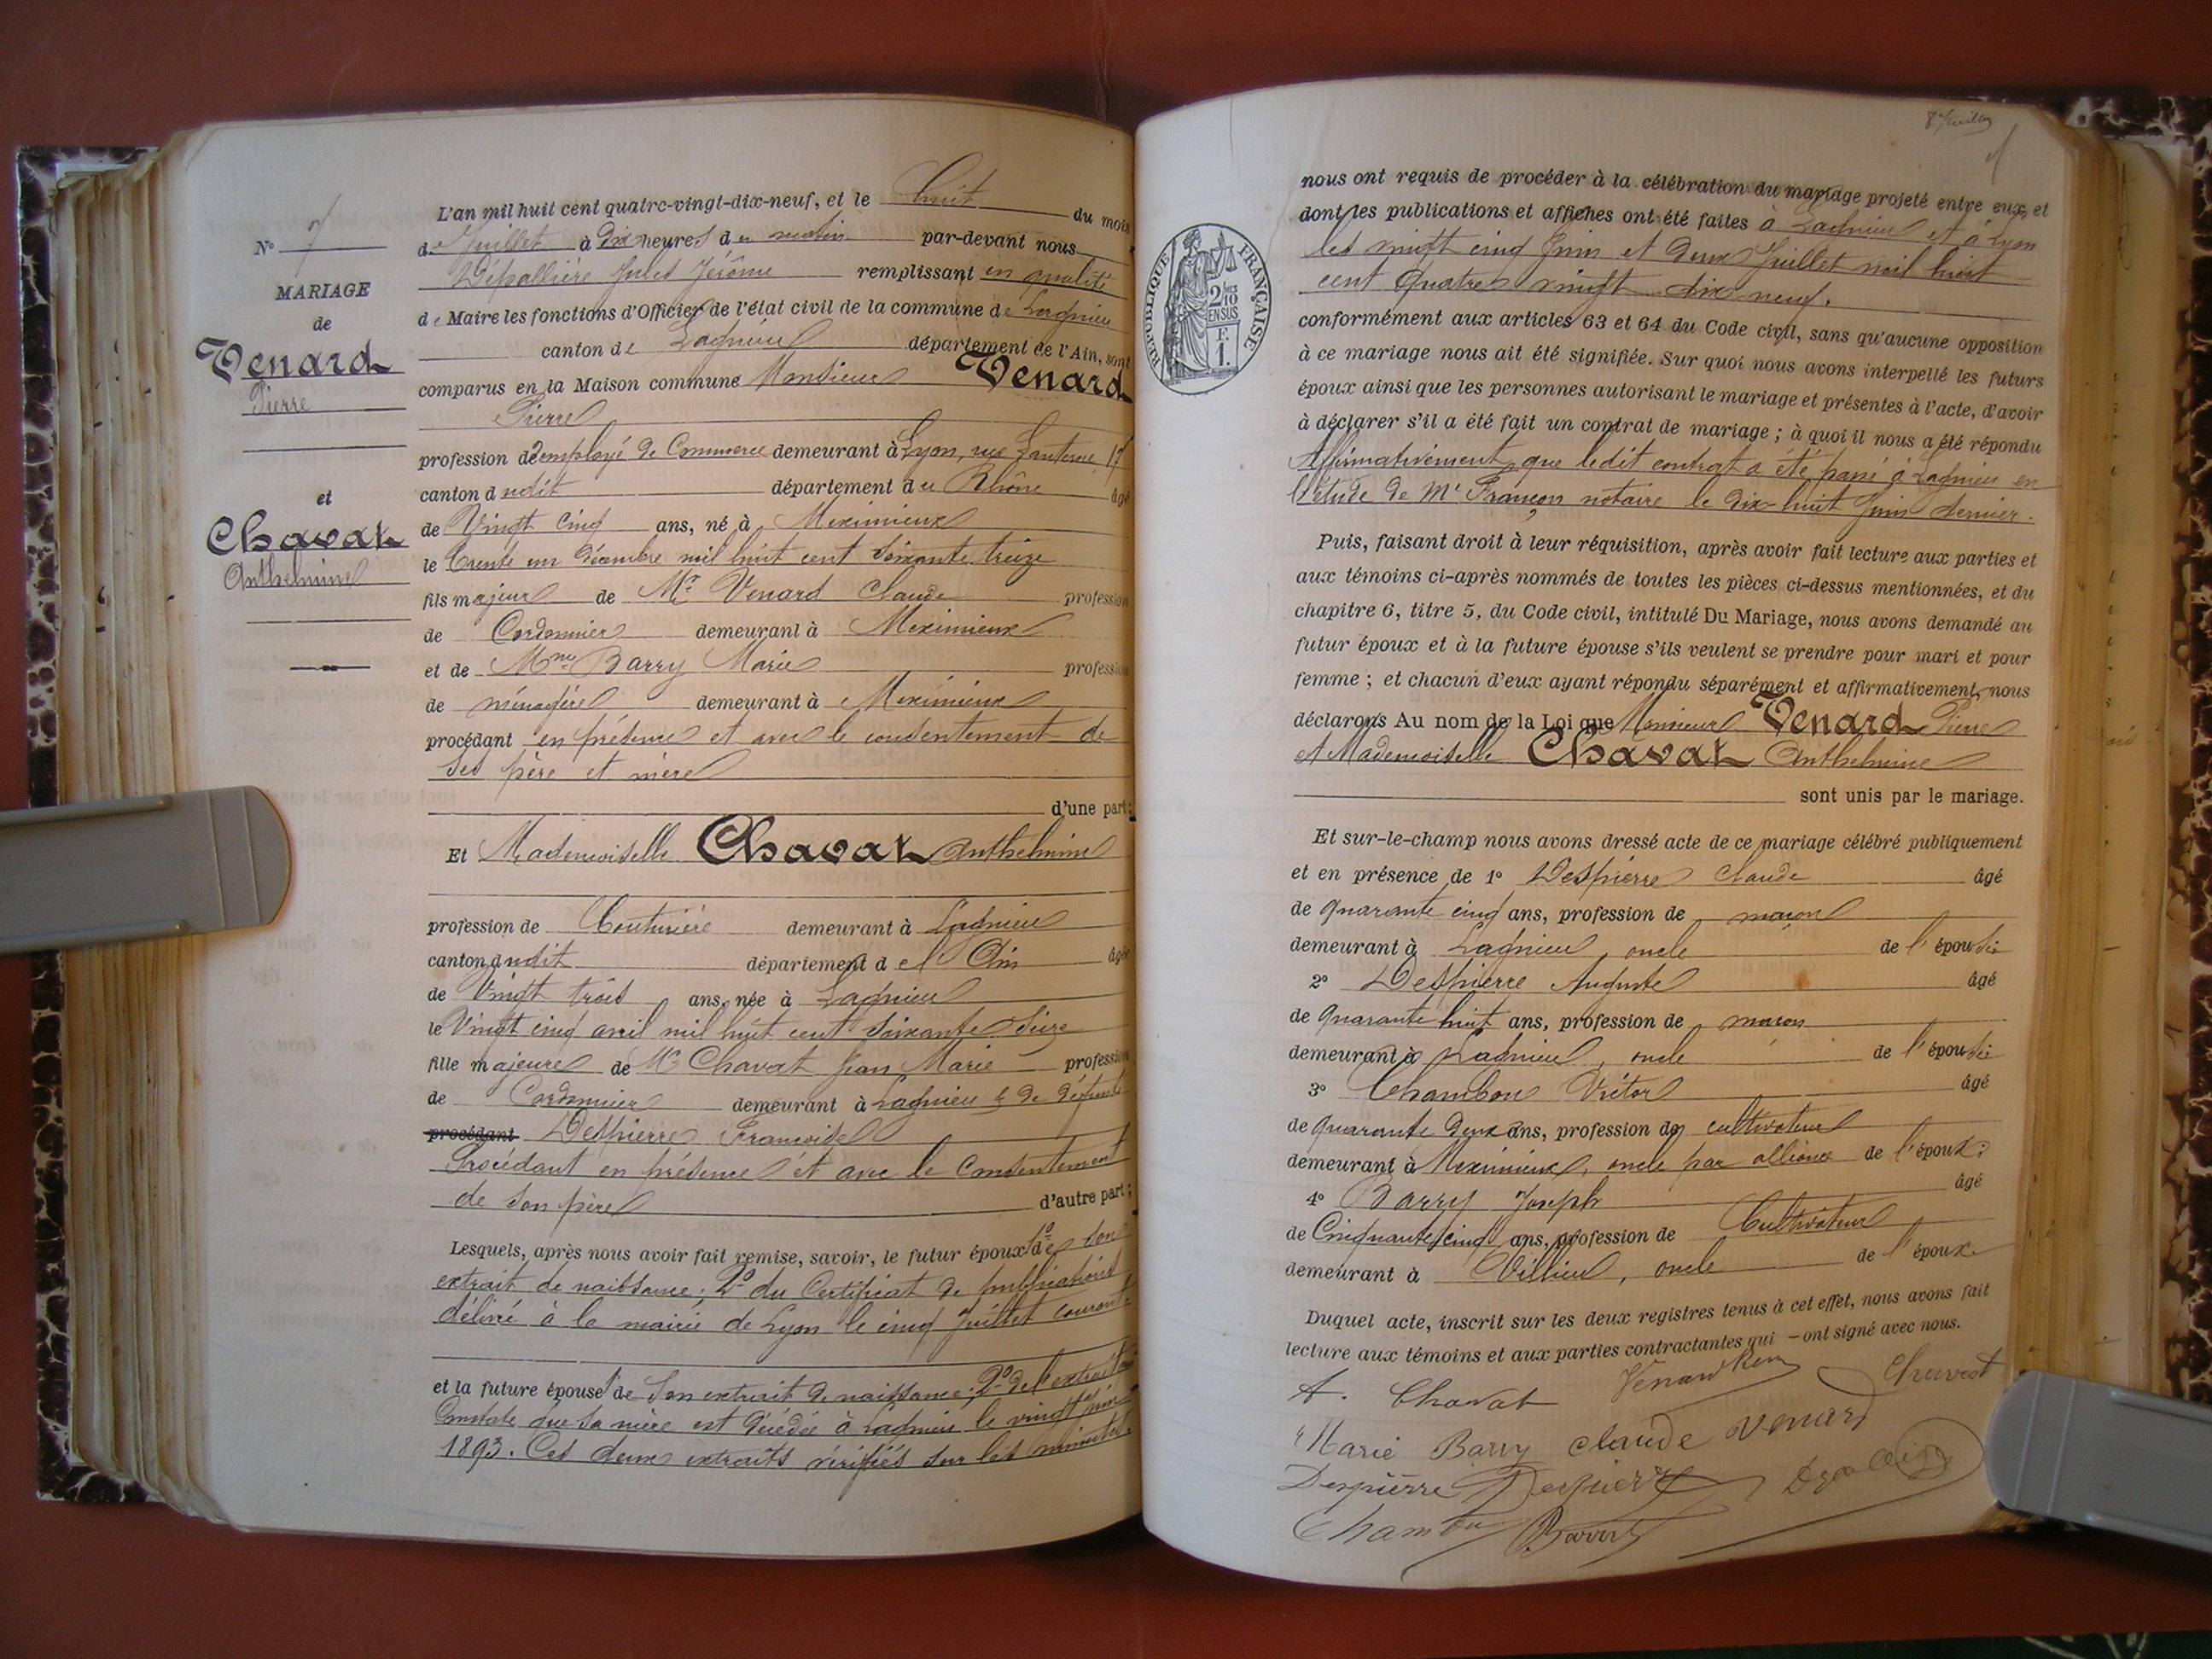 N° 7
MARIAGE
de
Venard
Pierre
et
Chavat
Anthelmine
L'an mil huit cent quatre-vingt-dix-neuf, et le huit du mois
de Juillet à dix heures du matin par-devant nous
Dépallière Jules Jérôme remplissant en qualité
de Maire les fonctions d'Officier de l'état civil de la commune de Lagnieu
canton de Lagnieu département de l'Ain, sont
comparus en la Maison commune Monsieur Venard
Pierre
profession d'employé de Commerce demeurant à Lyon, rue Lanterne 17
canton dudit département du Rhône âgé
de Vingt cinq ans, né à Meximieux
le trente un décembre mil huit cent soixante treize
fils majeur de Mr Venard Claude profession
de Cordonnier demeurant à Meximieux
et de Mme Barry Marie profession
de ménagère demeurant à Meximieux
procédant en présence et avec le consentement de
ses père et mère
d'une part;
Et Mademoiselle Chavat Anthelmine
profession de Couturière demeurant à Lagnieu
canton dudit département de l'Ain âgée
de Vingt trois ans, née à Lagnieu
le Vingt cinq avril mil huit cent soixante seize
fille majeure de Mr Chavat Jean Marie profession
de Cordonnier demeurant à Lagnieu & de défunte
procédant Despierre Françoise
Procédant en présence et avec le Consentement
de son père d'autre part;
Lesquels, après nous avoir fait remise, savoir, le futur époux 1° de son
extrait de naissance; 2° du Certificat de publications
délivré à la mairie de Lyon le cinq Juillet courant
et la future épouse de son extrait de naissance; 2° de l'extrait
Constate que sa mère est décédée à Lagnieu le vingt
1893. Ces deux extraits vérifiés sur les minutes.
8 Juillet
REPUBLIQUE FRANÇAISE
2/10 EN SUS
F. 1.
nous ont requis de procéder à la célébration du mariage projeté entre eux, et
dont les publications et affiches ont été faites à Lagnieu et à Lyon
les vingt cinq Juin et deux Juillet mil huit
cent quatre vingt dix neuf.
conformément aux articles 63 et 64 du Code civil, sans qu'aucune opposition
à ce mariage nous ait été signifiée. Sur quoi nous avons interpellé les futurs
époux ainsi que les personnes autorisant le mariage et présentes à l'acte, d'avoir
à déclarer s'il a été fait un contrat de mariage; à quoi il nous a été répondu
Affirmativement, que ledit contrat a été passé à Lagnieu en
l'étude de Me Françon notaire le dix-huit Juin dernier.
Puis, faisant droit à leur réquisition, après avoir fait lecture aux parties et
aux témoins ci-après nommés de toutes les pièces ci-dessus mentionnées, et du
chapitre 6, titre 5, du Code civil, intitulé Du Mariage, nous avons demandé au
futur époux et à la future épouse s'ils veulent se prendre pour mari et pour
femme; et chacun d'eux ayant répondu séparément et affirmativement, nous
déclarons Au nom de la Loi que Monsieur Venard Pierre
et Mademoiselle Chavat Anthelmine
sont unis par le mariage.
Et sur-le-champ nous avons dressé acte de ce mariage célébré publiquement
et en présence de 1° Despierre Claude âgé
de quarante cinq ans, profession de maçon
demeurant à Lagnieu, oncle de l'épouse:
2° Despierre Auguste âgé
de Quarante huit ans, profession de maçon
demeurant à Lagnieu, oncle de l'épouse:
3° Chambon Victor âgé
de quarante deux ans, profession de cultivateur
demeurant à Meximieux, oncle par alliance de l'époux:
4° Barry Joseph âgé
de Cinquante cinq ans, profession de Cultivateur
demeurant à Villieu, oncle de l'époux
Duquel acte, inscrit sur les deux registres tenus à cet effet, nous avons fait
lecture aux témoins et aux parties contractantes qui – ont signé avec nous.
A. Chavat Venard Chavat
Marie Barry Claude Venard
Despierre Despierre
Chambon Barry